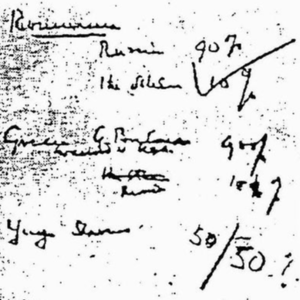 Roumania
Russia 90%
The others 10%
Greece G. Britain 90%
in accord with U.S.A.
Russia 10%
Yugoslavia 50/50%